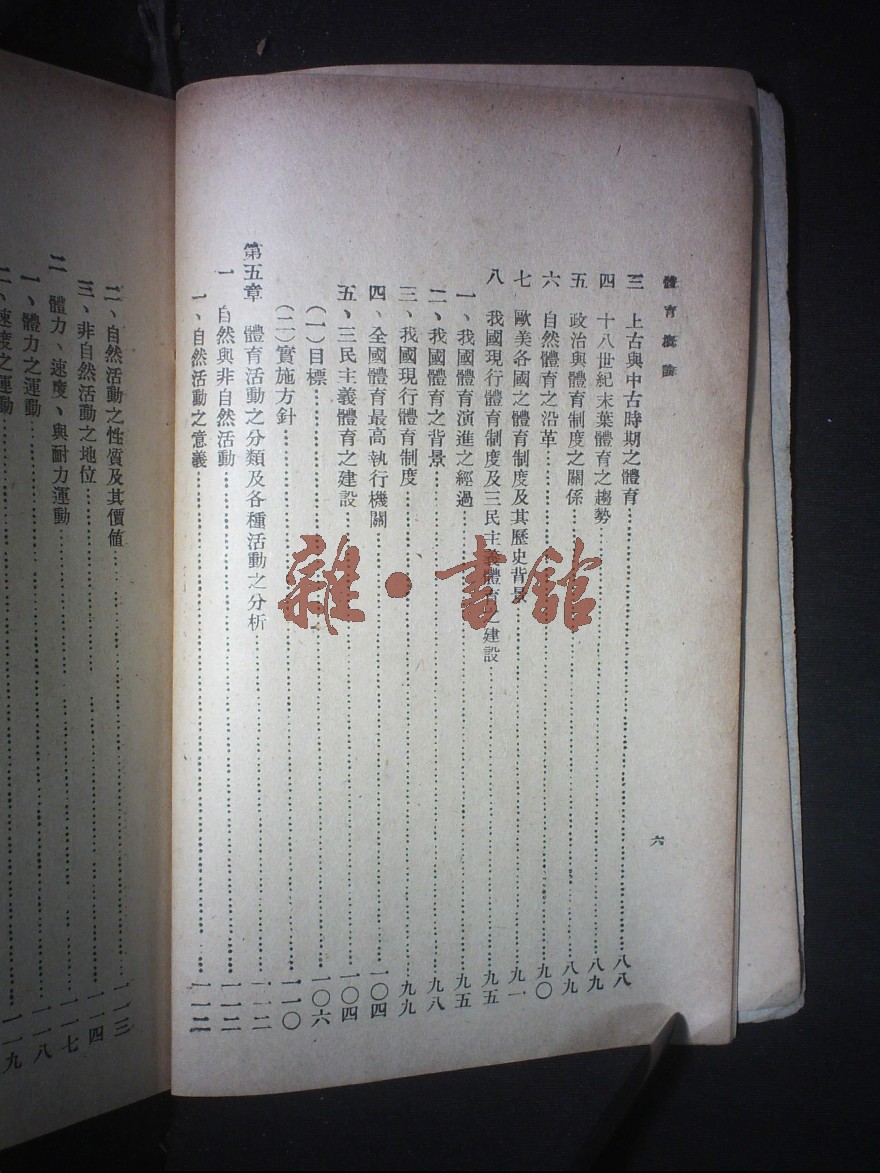 體育概論
六
三　上古與中古時期之體育……八八
四　十八世紀末葉體育之趨勢……八九
五　政治與體育制度之關係……八九
六　自然體育之沿革……九〇
七　歐美各國之體育制度及其歷史背景……九一
八　我國現行體育制度及三民主義體育之建設……九五
一、我國體育演進之經過……九五
二、我國體育之背景……九八
三、我國現行體育制度……九九
四、全國體育最高執行機關……一〇四
五、三民主義體育之建設……一〇四
（一）目標……一〇六
（二）實施方針……一一〇
第五章　體育活動之分類及各種活動之分析……一一二
一　自然與非自然活動……一一二
一、自然活動之意義……一一二
二、自然活動之性質及其價值……一一三
三、非自然活動之地位……一一四
二　體力、速度、與耐力運動……一一七
一、體力之運動……一一八
二、速度之運動……一一九
雜·書館